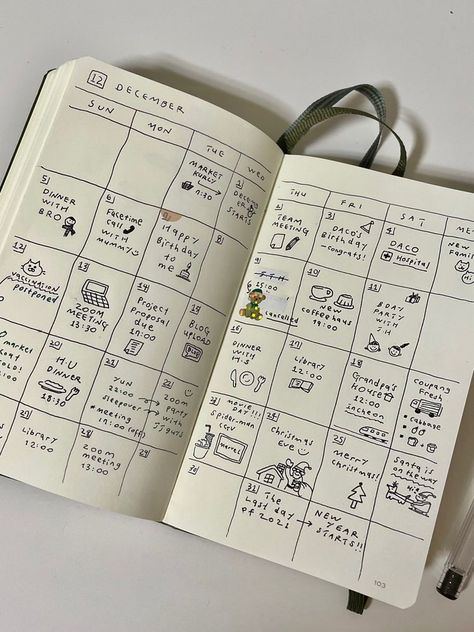 12 DECEMBER
SUN
MON
TUE
WED
MARKET
KURLY
7:30
1
DECEMBER
STARTS
5
DINNER
WITH
BRO
6
Facetime
call
WITH
MUMMY
7
Happy
Birthday
to
me
8
12
VACCINATION
Postponed
13
ZOOM
MEETING
13:30
14
Project
Proposal
due
17:00
BLOG
UPLOAD
Blog
market
20
H.U
DINNER
18:30
21
YUN
22:00
sleepover
*meeting
22
ZOOM
Party
with
27
Library
12:00
28
Zoom
meeting
13:00
29
THU
FRI
SAT
ME
2
TEAM
MEETING
3
DACO's
Birthday
-congrats!
4
DACO
Hospital
New
Famil
Hi
9
15:00
cancelled
10
NEW
coffeehaus
19:00
11
B DAY
PARTY
WITH
J.H
16
DINNER
WITH
M.S
17
Library
12:00
18
Grandpa's
HOUSE
12:00
incheon
Coupang
Fresh
cabbage
MOVIE
DAY!!!
Spider-man
CGV
marvel
24
Christmas
Eve
25
Merry
Christmas!
Santa is
on the way
30
31
The
Last day
of 2021
→
NEW
YEAR
STARTS!!
103